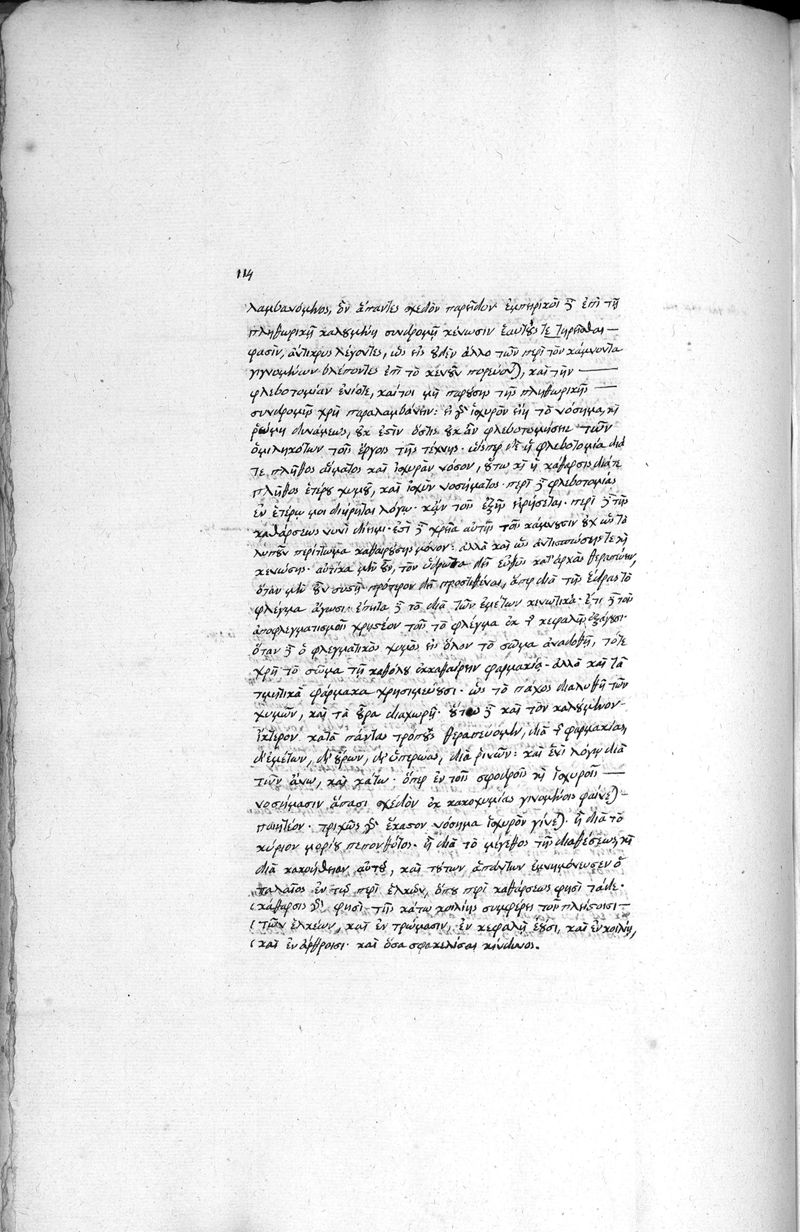 114
λαμβανόμενος, ὃν ἅπαντες σχεδὸν παρεῖδον· ἐμπειρικοὶ δὲ ἐπὶ τῇ
πληθωρικῇ καλουμένῃ συνδρομῇ κένωσιν ἑαυτοὺς τετηρῆσθαι
φασὶν, ἄντικρυς λέγοντες, ὡς εἰς οὐδὲν ἄλλο τῶν περὶ τὸν κάμνοντα
γιγνομένων βλέποντες ἐπὶ τὸ κενοῦν πορεύονται, καὶ τὴν
φλεβοτομίαν ἐνίοτε, καίτοι μὴ παρούσης τῆς πληθωρικῆς
συνδρομῆς χρὴ παραλαμβάνειν· εἰ γὰρ ἰσχυρὸν εἴη τὸ νόσημα, καὶ
ῥώμη δυνάμεως, οὐκ ἔστιν ὅστις οὐκ ἂν φλεβοτομήσειε τῶν
ὡμιληκότων τοῖς ἔργοις τῆς τέχνης· ὥσπερ δὲ ἡ φλεβοτομία διά
τε πλῆθος αἵματος καὶ ἰσχυρὰν νόσον, οὕτω καὶ ἡ κάθαρσις διά τε
πλῆθος ἑτέρου χυμοῦ, καὶ ἰσχὺν νοσήματος· περὶ δὲ φλεβοτομίας
ἐν ἑτέρῳ μοι διῄρηται λόγῳ· κἀν τοῖς ἑξῆς εἰρήσεται· περὶ δὲ τῆς
καθάρσεως νυνὶ δίειμι· ἔστι δὲ χρεία αὐτῆς τοῖς κάμνουσιν οὐχ ὡς τὸ
λυποῦν περίττωμα καθαιρούσης μόνον· ἀλλὰ καὶ ὡς ἀντισπώσης τε καὶ
κενώσης· αὐτίκα μὲν οὖν, τὸν ὕδρωπα δεῖ εὐθὺς κατ' ἀρχὰς θεραπεύειν,
ὅταν μὲν οὖν συστῇ πρότερον δεῖ προστιθέναι, ἅπερ διὰ τῆς ἕδρας τὸ
φλέγμα ἄγωσι· ἔπειτα δὲ τὰ διὰ τῶν ἐμέτων κενωτικά· ἔτι δὲ τοῖς
ἀποφλεγματισμοῖς χρηστέον τοῖς τὸ φλέγμα ἐκ τῆς κεφαλῆς ἐξάγουσι·
ὅταν δὲ ὁ φλεγματικὸς χυμὸς εἰς ὅλον τὸ σῶμα ἀναδοθῇ, τότε
χρὴ τὸ σῶμα τῇ καθόλου ἐκκαθαίρειν φαρμακείᾳ· ἀλλὰ καὶ τὰ
τμητικὰ φάρμακα χρησιμεύουσι· ὡς τὸ πάχος διαλυθῇ τῶν
χυμῶν, καὶ τὰ οὖρα διαχωρῇ· οὕτω δὲ καὶ τὸν καλούμενον
ἴκτερον κατὰ πάντας τρόπους θεραπεύομεν, διὰ τῆς φαρμακείας,
δι' ἐμέτων, δι' οὔρων, δι' ὑπερῴας, διὰ ῥινῶν· καὶ ἑνὶ λόγῳ διὰ
τῶν ἄνω, καὶ κάτω· ὅπερ ἐν τοῖς σφοδροῖς καὶ ἰσχυροῖς
νοσήμασιν ἅπασι σχεδὸν ἐκ κακοχυμίας γινομένοις φαίνεται
ποιητέον· τριχῶς γὰρ ἕκαστον νόσημα ἰσχυρὸν γίνεται· ἢ διὰ τὸ
κύριον μορίου πεπονθότος· ἢ διὰ τὸ μέγεθος τῆς διαθέσεως, καὶ
διὰ κακοήθειαν αὐτοῦ, καὶ τούτων ἁπάντων ἐμνημόνευσεν ὁ
παλαιὸς ἐν τῷ περὶ ἑλκῶν, ὅπου περὶ καθάρσεως φησὶ τάδε·
κάθαρσις δὲ φησὶ τῆς κάτω κοιλίης συμφέρει τοῖς πλείστοισι
τῶν ἑλκέων, καὶ ἐν τρώμασιν, ἐν κεφαλῇ ἐοῦσι, καὶ ἐν κοιλίῃ,
καὶ ἐν ἄρθροισι· καὶ ὅσα σφακελίσαι κίνδυνος.